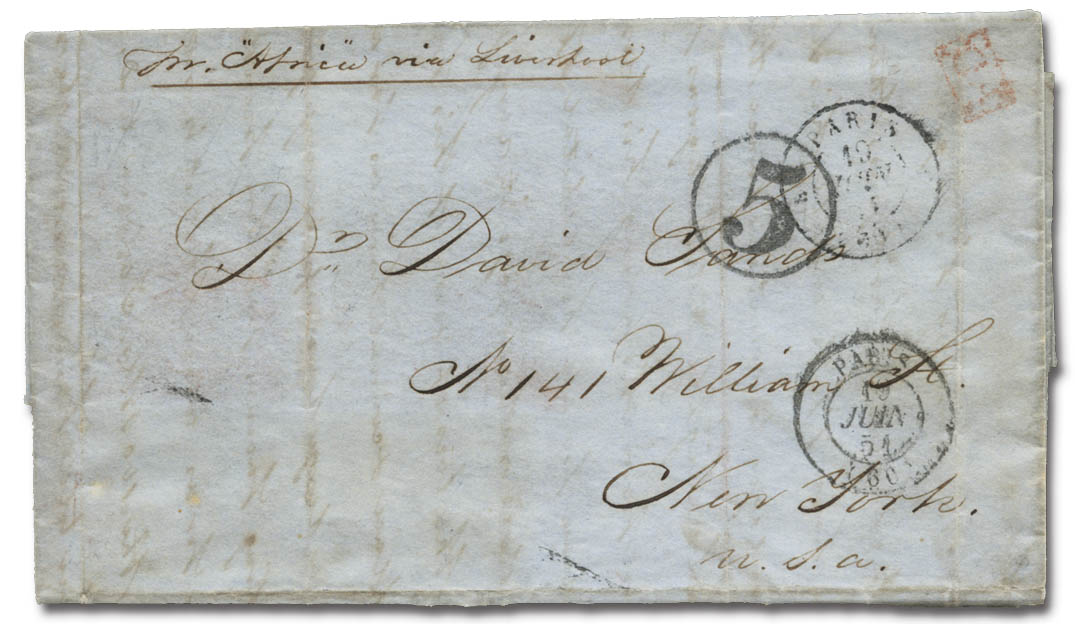 per "Africa" via Liverpool
PARIS
19
JUIN
5
Dr. David Sands
No 141 William St.
PARIS
19
JUIN
51
(60)
New York.
U.S.A.